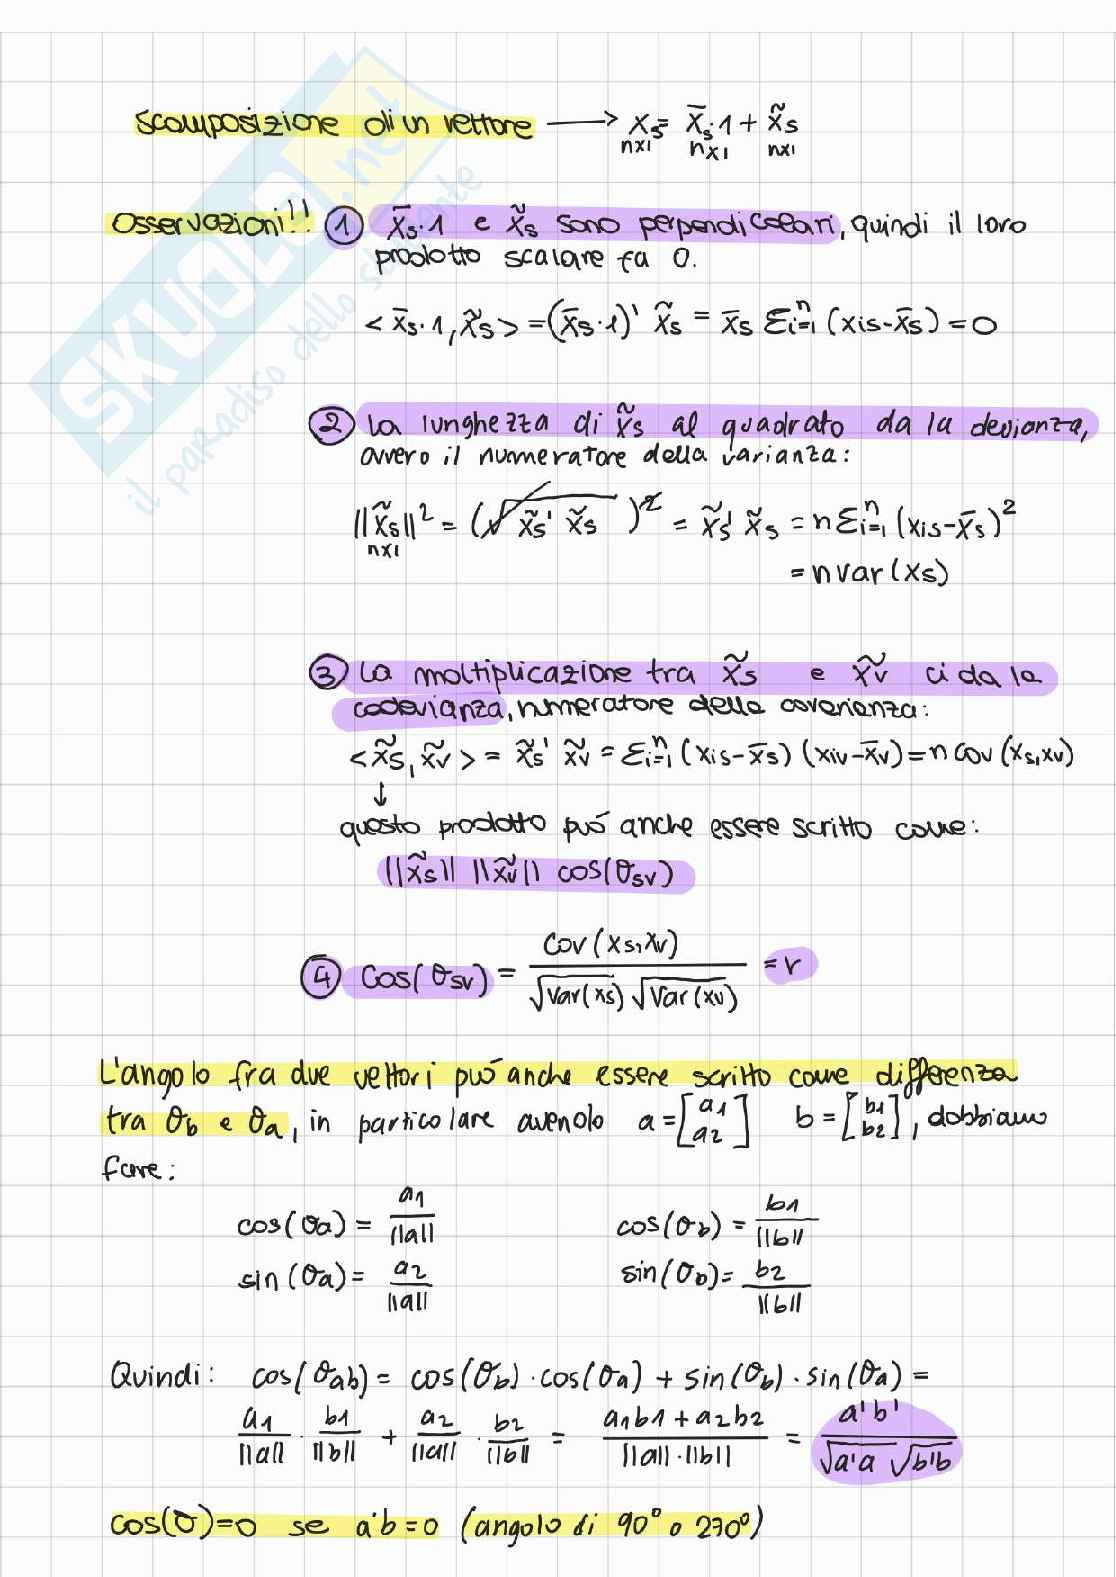 scomposizione di un vettore ⟶ Xs = X̄s·1 + X̃s
nx1 nx1 nx1
Osservazioni!! ① X̄s·1 e X̃s sono perpendicolari, quindi il loro
prodotto scalare fa 0.
< X̄s·1, X̃s > = (X̄s·1)' X̃s = X̄s Σi=1^n (xis-X̄s) = 0
② La lunghezza di X̃s al quadrato da la devianza,
ovvero il numeratore della varianza:
||X̃s||² = (√X̃s' X̃s)² = X̃s' X̃s = n Σi=1^n (xis-X̄s)²
nx1
= n var(xs)
③ La moltiplicazione tra X̃s e X̃v ci da la
codevianza, numeratore della covarianza:
< X̃s, X̃v > = X̃s' X̃v = Σi=1^n (xis-X̄s) (xiv-X̄v) = n cov(xs,xv)
↓
questo prodotto può anche essere scritto come:
||X̃s|| ||X̃v|| cos(θsv)
④ cos(θsv) = Cov(xs,xv) / √Var(xs) √Var(xv) = r
L'angolo fra due vettori può anche essere scritto come differenza
tra θb e θa, in particolare avendo a = [a1 a2] b = [b1 b2], dobbiamo
fare:
cos(θa) = a1/||a|| cos(θb) = b1/||b||
sin(θa) = a2/||a|| sin(θb) = b2/||b||
Quindi: cos(θab) = cos(θb)·cos(θa) + sin(θb)·sin(θa) =
a1/||a|| · b1/||b|| + a2/||a|| · b2/||b|| = a1b1 + a2b2 / ||a||·||b|| = a'b' / √a'a √b'b
cos(θ)=0 se a'b=0 (angolo di 90° o 270°)
SKUOLA.net
il paradiso dello studente